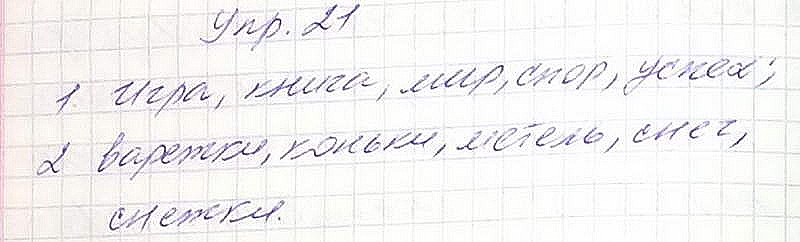 Упр. 21
1. Игра, книга, мир, спор, успех;
2 варежки, коньки, метель, снег,
снежки.